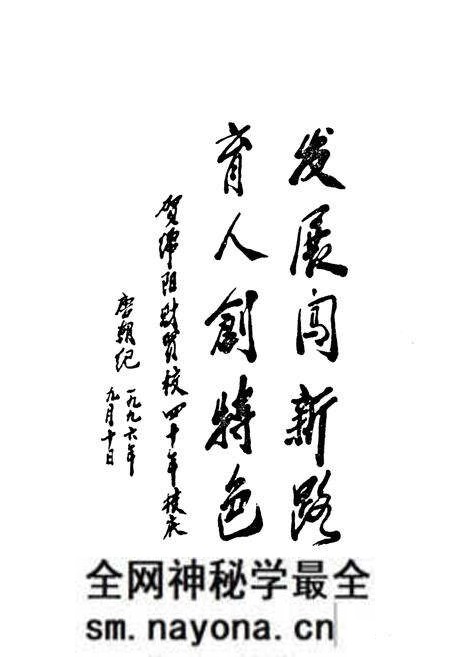 发展闯新路
育人創特色
贺绵阳财贸校四十年校庆
唐朝纪
一九九六年
九月十日
全网神秘学最全
sm.nayona.cn